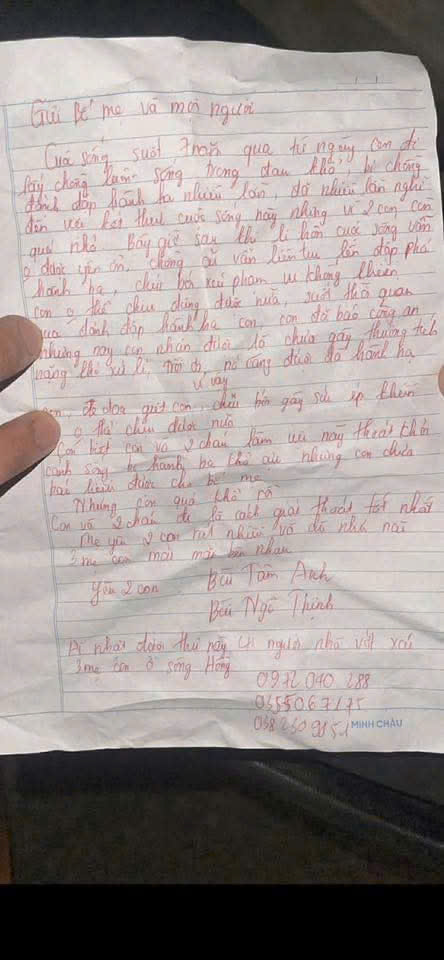 Gửi Bố mẹ và mọi người
Cuộc sống suốt 7 năm qua từ ngày con đi
lấy chồng luôn sống trong đau khổ, bị chồng
đánh đập hành hạ nhiều lần, đã nhiều lần nghĩ
đến việc kết thúc cuộc sống này nhưng vì 2 con còn
quá nhỏ. Bây giờ sau khi li hôn cuộc sống vẫn
o được yên ổn, chồng cũ vẫn liên tục đến đập phá
hành hạ, chửi bới xúc phạm vu khống khiến
con o thể chịu đựng được nữa, suốt thời gian
qua đánh đập hành hạ con, con đã báo công an
nhưng nay con nhận được là chưa gây thương tích
nặng khó xử lí, nó càng được đà hành hạ
vì vậy
đe dọa giết con, chửi bới gây sức ép khiến
o thể chịu được nữa
Con biết con và 2 cháu làm việc này thoát khỏi
cảnh sống bị hành hạ khổ ải nhưng con chưa
báo hiếu được cho bố mẹ
Nhưng con quá khổ rồi
Con và 2 cháu đi là cách giải thoát tốt nhất
Mẹ yêu 2 con rất nhiều và đã như nói
3 mẹ con mãi mãi bên nhau
Yêu 2 con Bùi Tâm Anh
Bùi Ngô Thịnh
Ai nhặt được thư này LH người nhà vớt xác
3 mẹ con ở sông Hồng
0972 040 288
0355067175
038 230 9851
MINH CHÂU